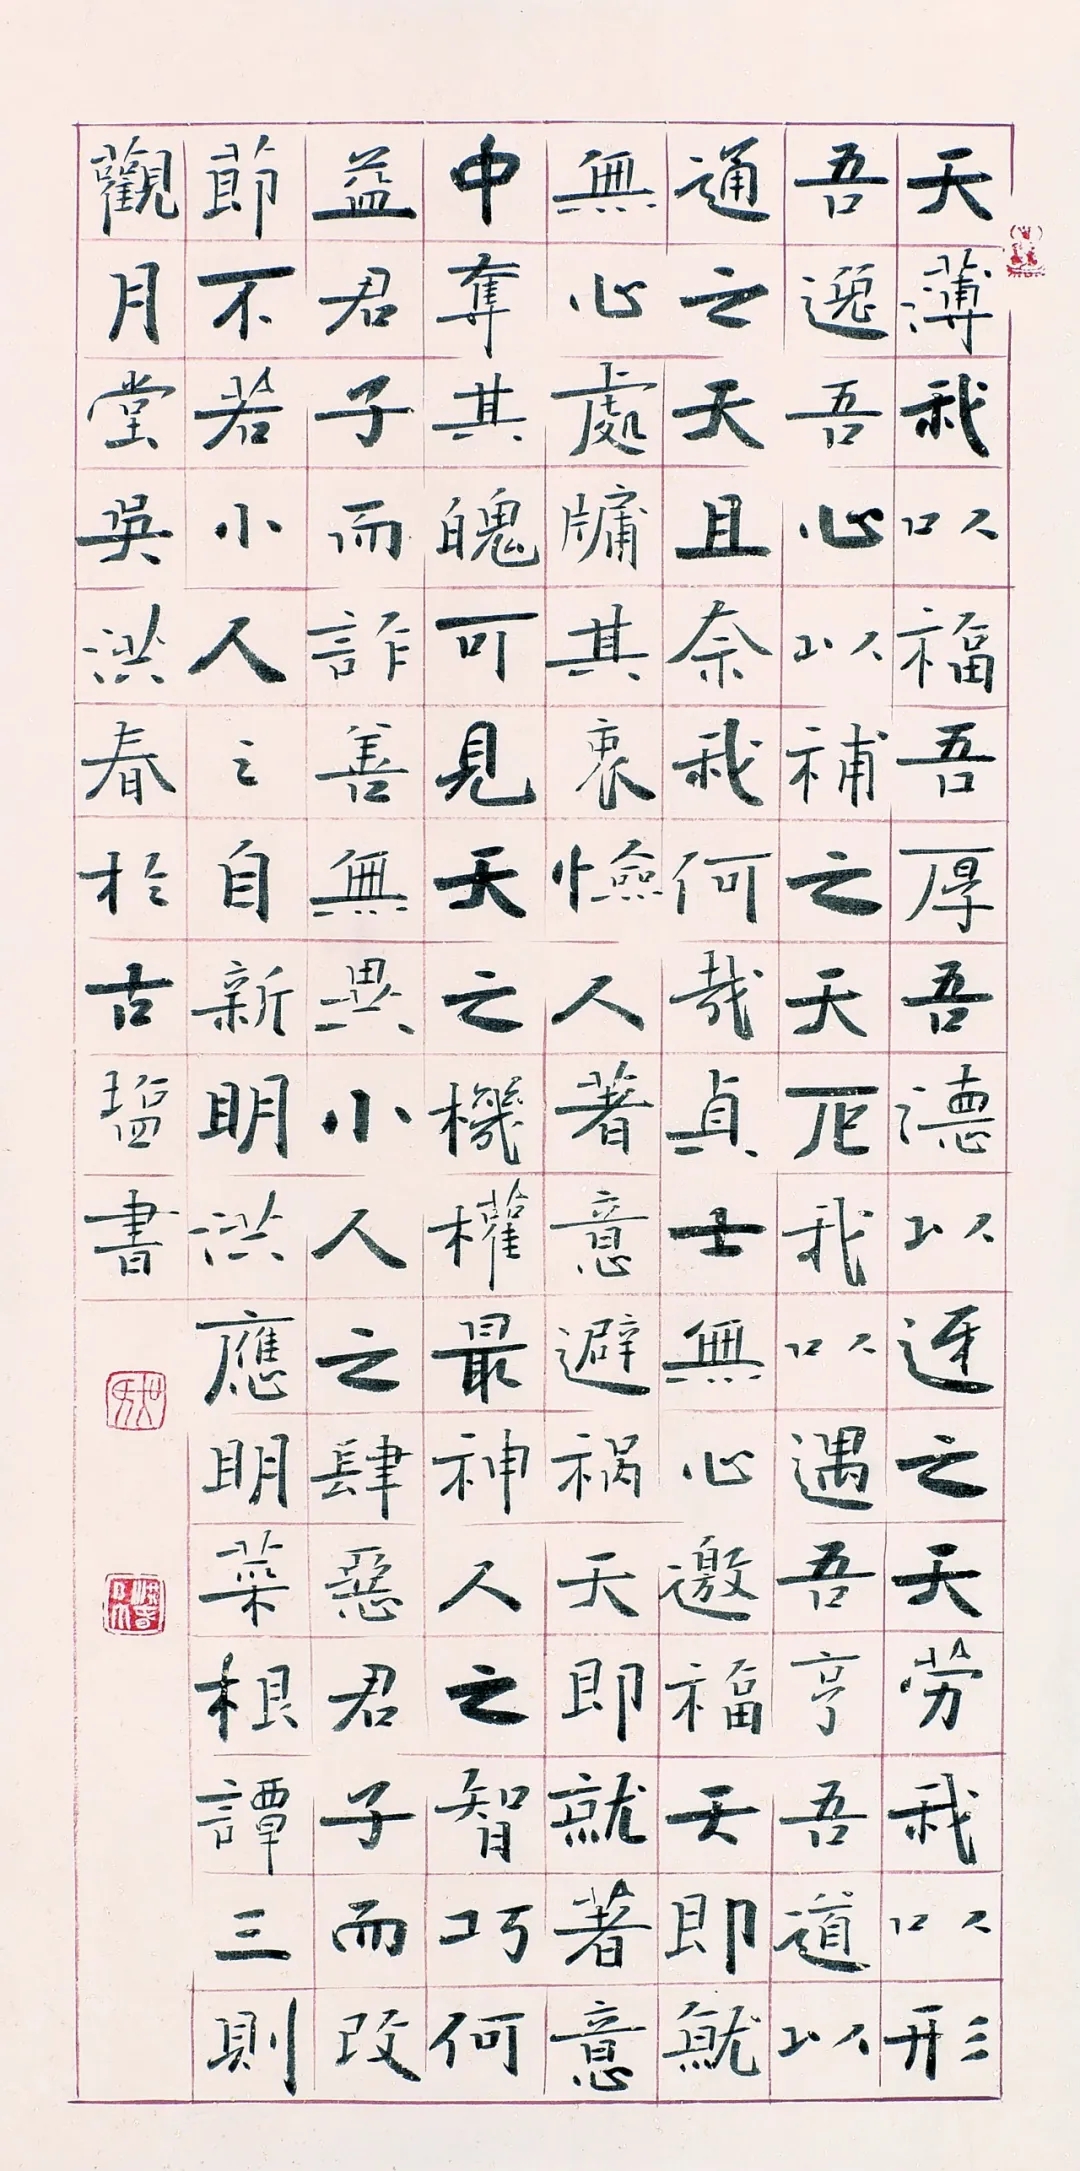 天薄我以福吾厚吾德以迓之天勞我以形
吾逸吾心以補之天戹我以遇吾亨吾道以
通之天且奈我何哉貞士無心邀福天即就
無心處牖其衷憸人著意避禍天即就著意
中奪其魄可見天之機權最神人之智巧何
益君子而詐善無異小人之肆惡君子而改
節不若小人之自新明洪應明菜根譚三則
觀月堂吳洪春於古鹽書